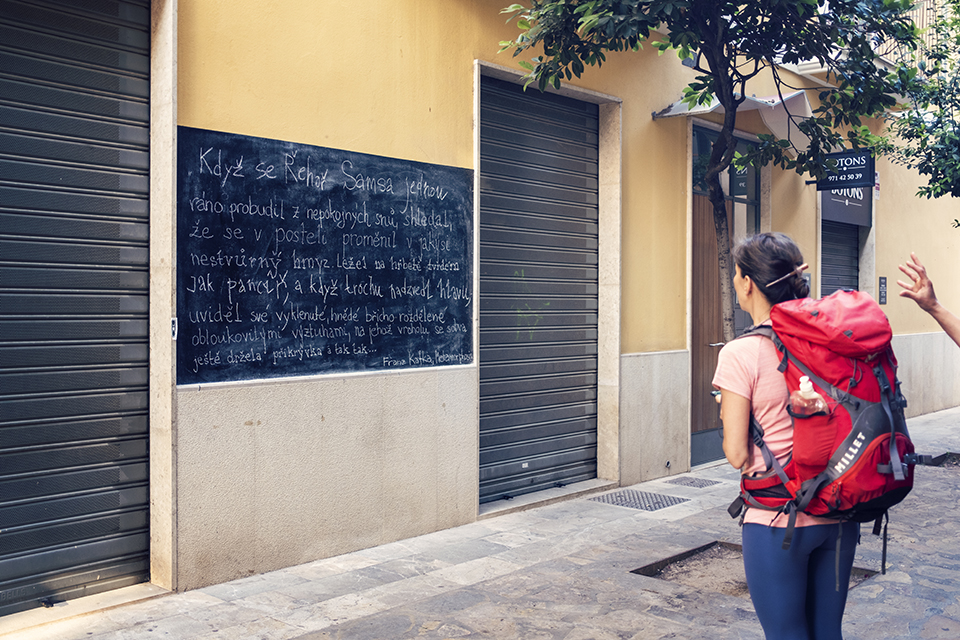 Když se Řehoř Samsa jednou
ráno probudil z nepokojných snů, shledal,
že se v posteli proměnil v jakýsi
nestvůrný hmyz. Ležel na hřbetě tvrdém
jak pancíř, a když trochu nadzvedl hlavu,
uviděl své vyklenuté, hnědé břicho rozdělené
obloukovitými výztuhami, na jehož vrcholu se sotva
ještě držela přikrývka a tak tak...
Franz Kafka, Metamorphosis
BOTONS
971 42 50 39
BOTONS
MILLET